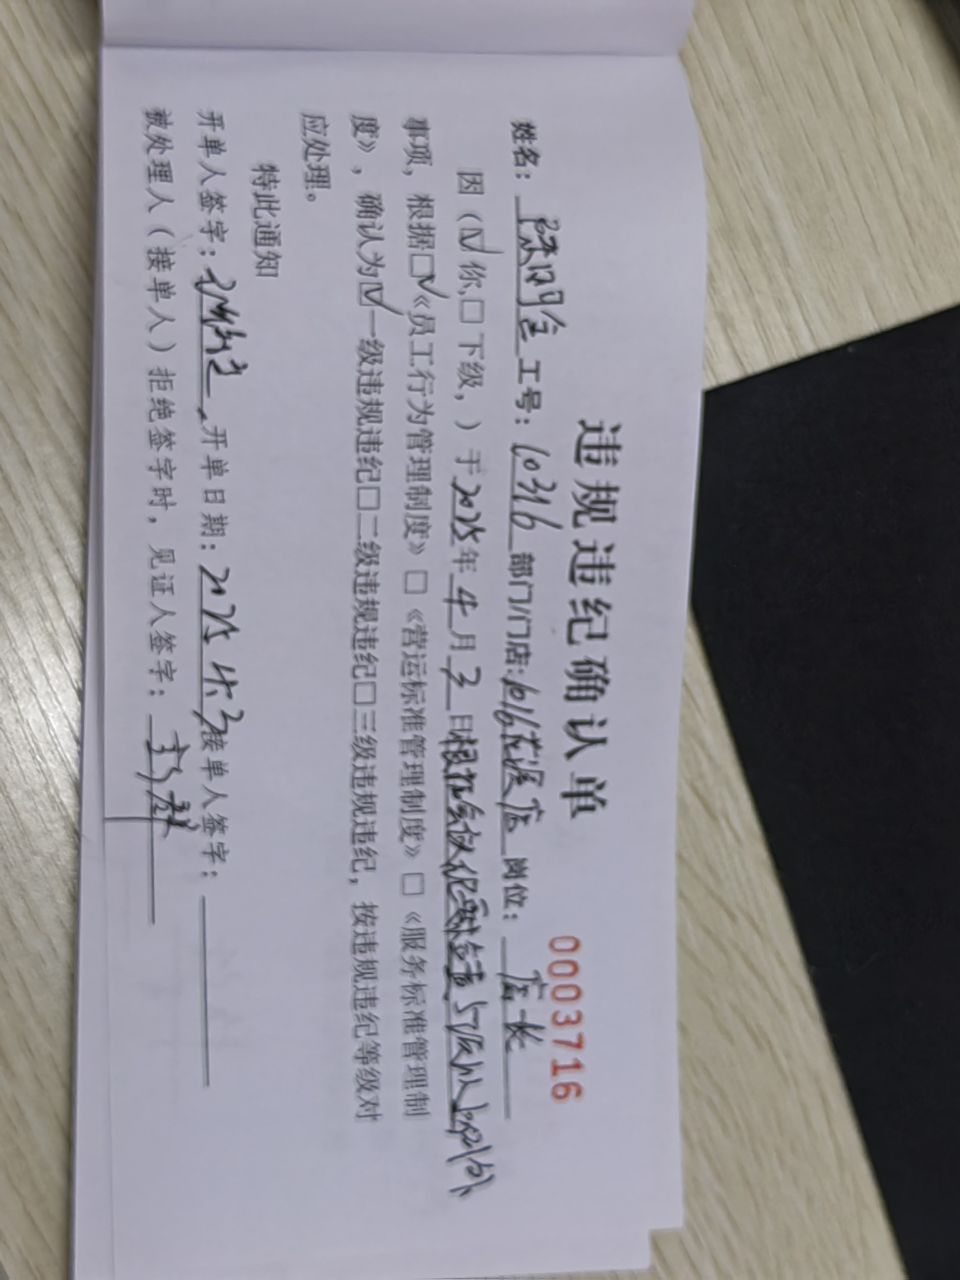 违规违纪确认单
0003716
姓名：工号：10316 部门/门店：岗位：店长
因（☑你，□下级，）于2025年4月3日根据会议
事项，根据☑《员工行为管理制度》□《营运标准管理制度》□《服务标准管理制
度》，确认为☑一级违规违纪□二级违规违纪□三级违规违纪，按违规违纪等级对
应处理。
特此通知
开单人签字：开单日期：2025 4.3 接单人签字：
被处理人（接单人）拒绝签字时，见证人签字：